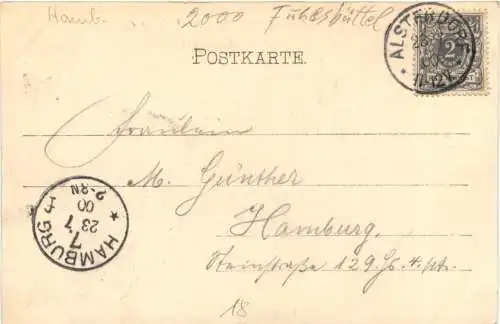 Hamb. 2000 Fuhlsbüttel
POSTKARTE.
ALSTERDORF
2
11-12V
Fräulein
M. Günther
Hamburg.
Steinstraße 129. Hs. 4. pt.
* HAMBURG 1
7
23 7
00
2-3N
18